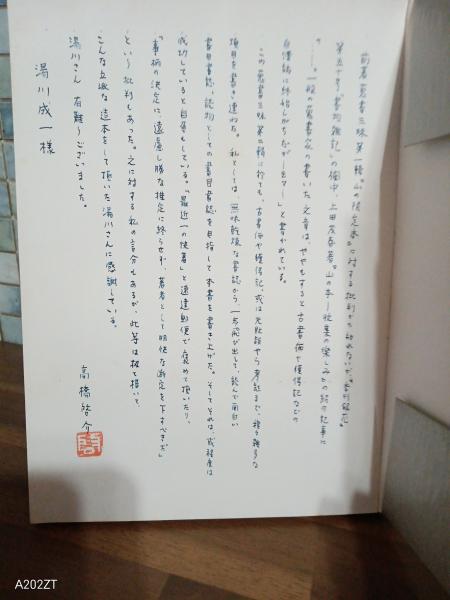 前著『蒐書三昧 第一輯 山の限定本』に対する批判がされたなかで、『季刊銀花』
第五十号「書物雑記」の欄中、上田茂春著『山の本』－ 社業の楽しみの紹の記事に
「……一般の蒐書家の書いた文章は、ややもすると古書価や獲得記などの
自慢話に終始しがちだが（……）」と書かれている。
この蒐書三昧第二輯に於ても、古書価や獲得記、或は元版談やら考証まで、種々雑多な
項目を書き連ねた。私としては、無味乾燥な書誌から、一歩飛び出して、読んで面白い
書目書誌、読物としての書目書誌を目指して本書を書き上げた。そしてそれは、或程度は
成功していると自負もしている。「最近一の快著」と速達郵便で褒めて頂いたり、
「事柄の決定に、遠慮し勝な推定に終らせず、著者として明快な断定を下すべきだ」
という批判もあった。之に対する私の言分もあるが、此等は扨て措いて、
こんな立派な造本をして頂いた湯川さんに感謝している。
湯川さん 有難うございました。
高橋啓介
湯川成一様
A202ZT